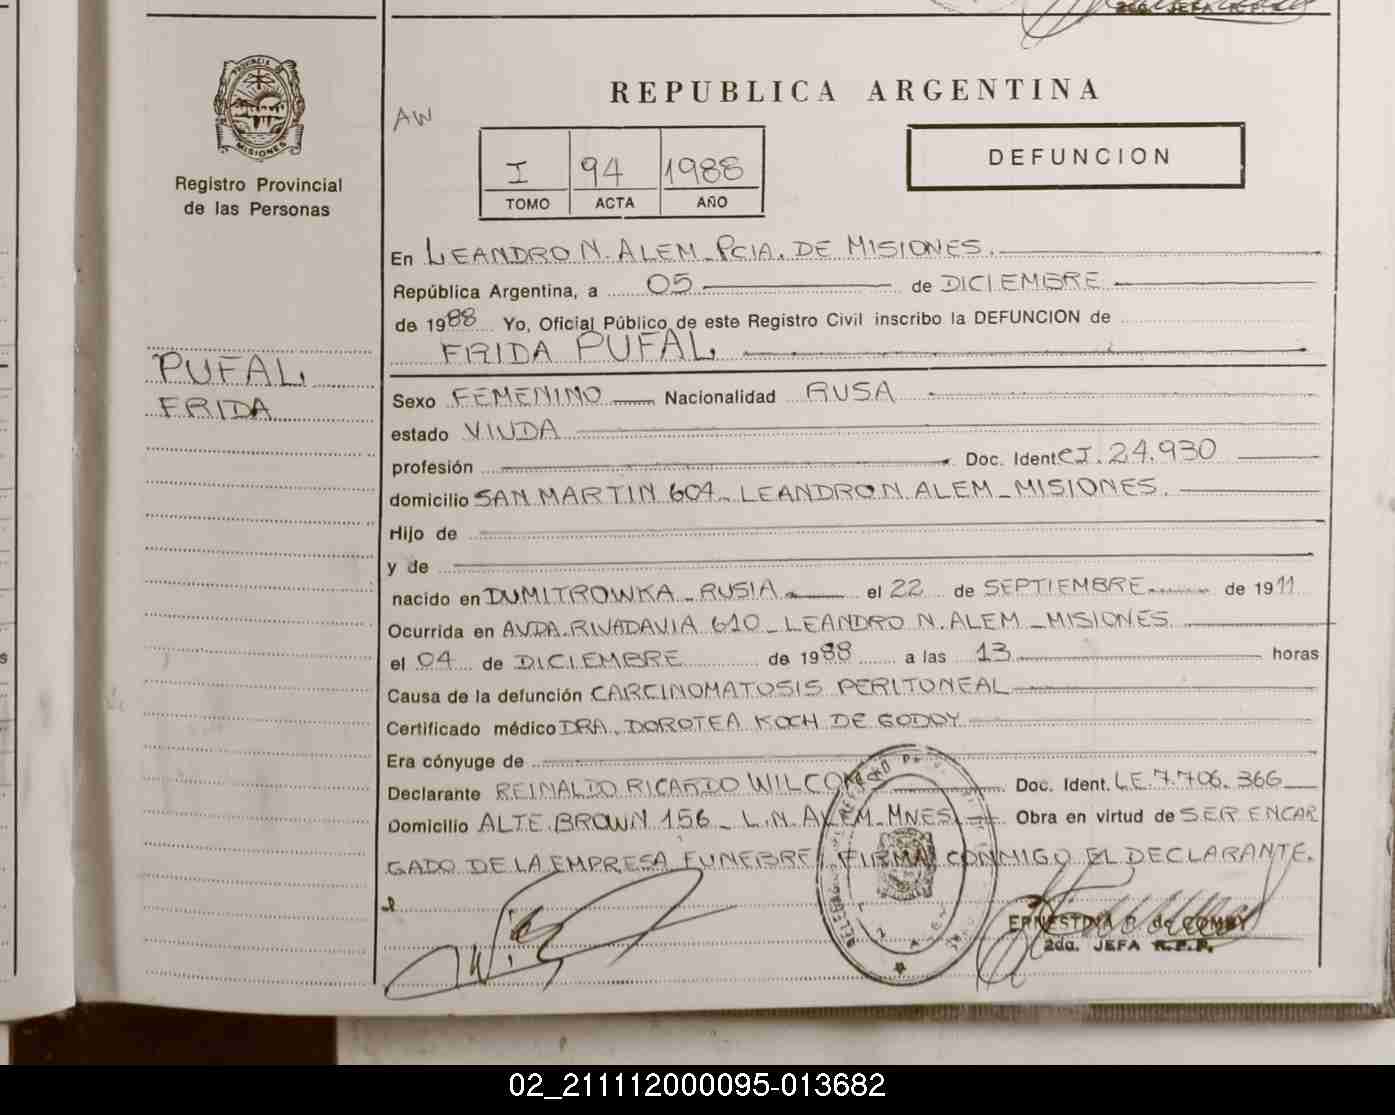 PROVINCIA DE
MISIONES
Registro Provincial
de las Personas
PUFAL
FRIDA
2da. JEFA R.P.P.
REPUBLICA ARGENTINA
AW
I 94 1988
TOMO ACTA AÑO
DEFUNCION
En LEANDRO N. ALEM_PCIA. DE MISIONES.
República Argentina, a 05 de DICIEMBRE
de 1988 Yo, Oficial Público de este Registro Civil inscribo la DEFUNCION de
FRIDA PUFAL
Sexo FEMENINO Nacionalidad RUSA
estado VIUDA
profesión Doc. Ident CI. 24.930
domicilio SAN MARTIN 604_ LEANDRO N. ALEM_MISIONES.
Hijo de
y de
nacido en DUMITROWKA_RUSIA el 22 de SEPTIEMBRE de 1911
Ocurrida en AVDA. RIVADAVIA 610_LEANDRO N. ALEM_MISIONES
el 04 de DICIEMBRE de 1988 a las 13 horas
Causa de la defunción CARCINOMATOSIS PERITONEAL
Certificado médico DRA. DOROTEA KOCH DE GODOY
Era cónyuge de
Declarante REINALDO RICARDO WILCO Doc. Ident. L.E. 7.706.366
Domicilio ALTE. BROWN 156_ L.N. ALEM_MNES. Obra en virtud de SER ENCAR
GADO DE LA EMPRESA FUNEBRE, FIRMA CONMIGO EL DECLARANTE.
ERNESTINA de
2da. JEFA R.P.P.
02_211112000095-013682